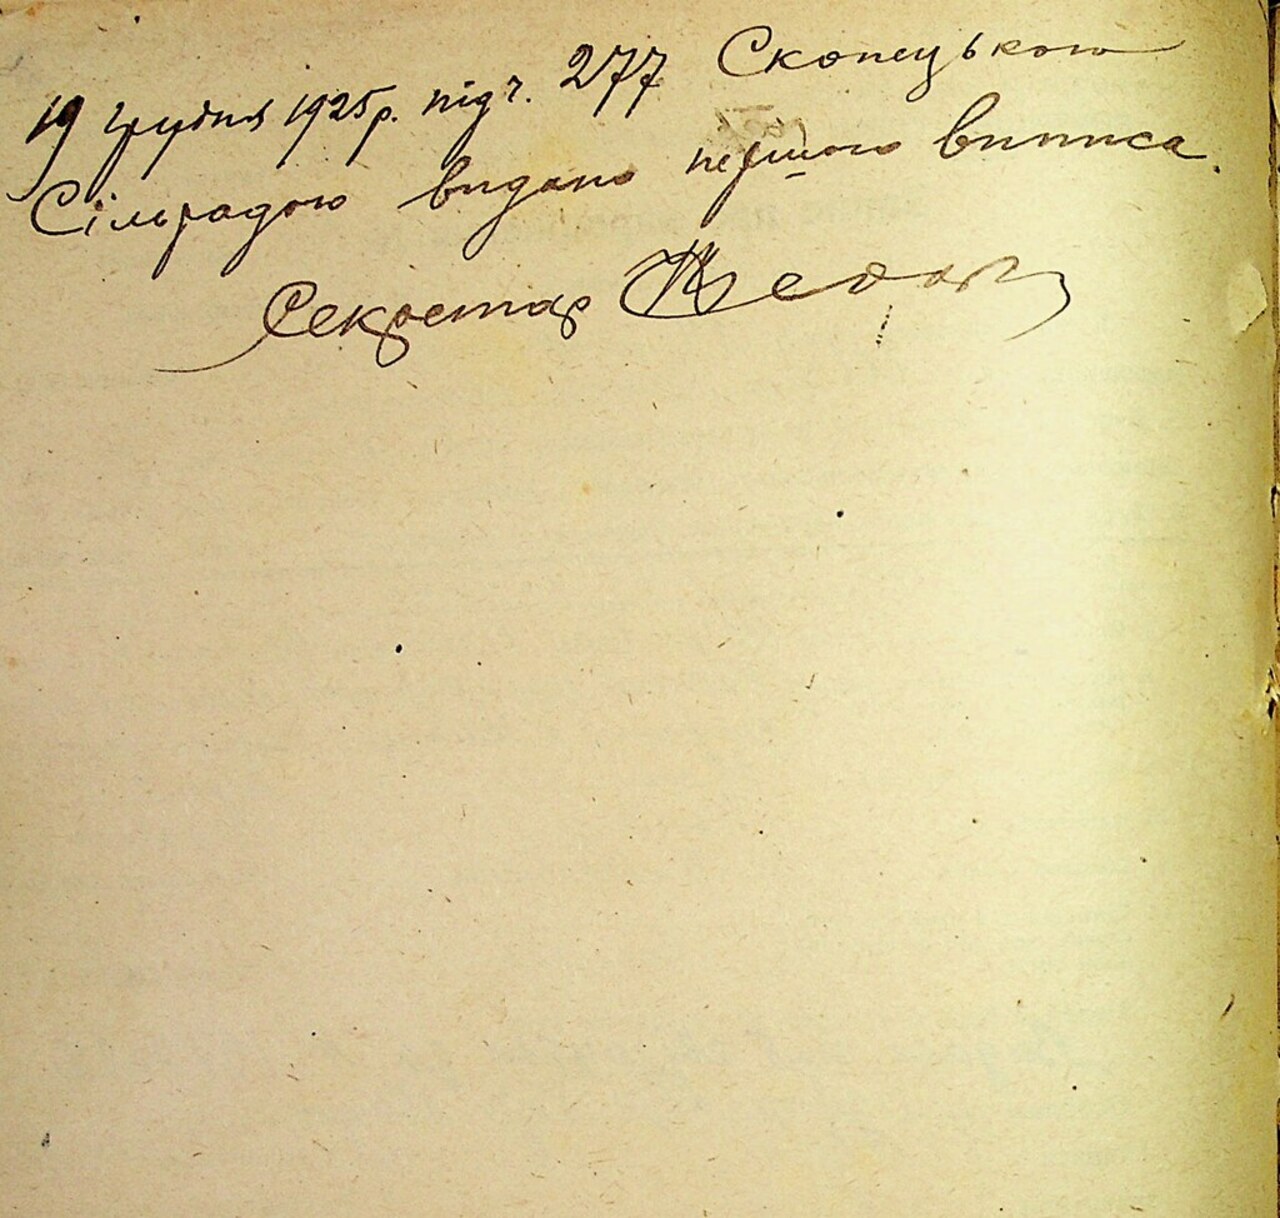 19 грудня 1925 р. під ч. 277 Скопецькою
Сільрадою видано першого виписа.
Секретар